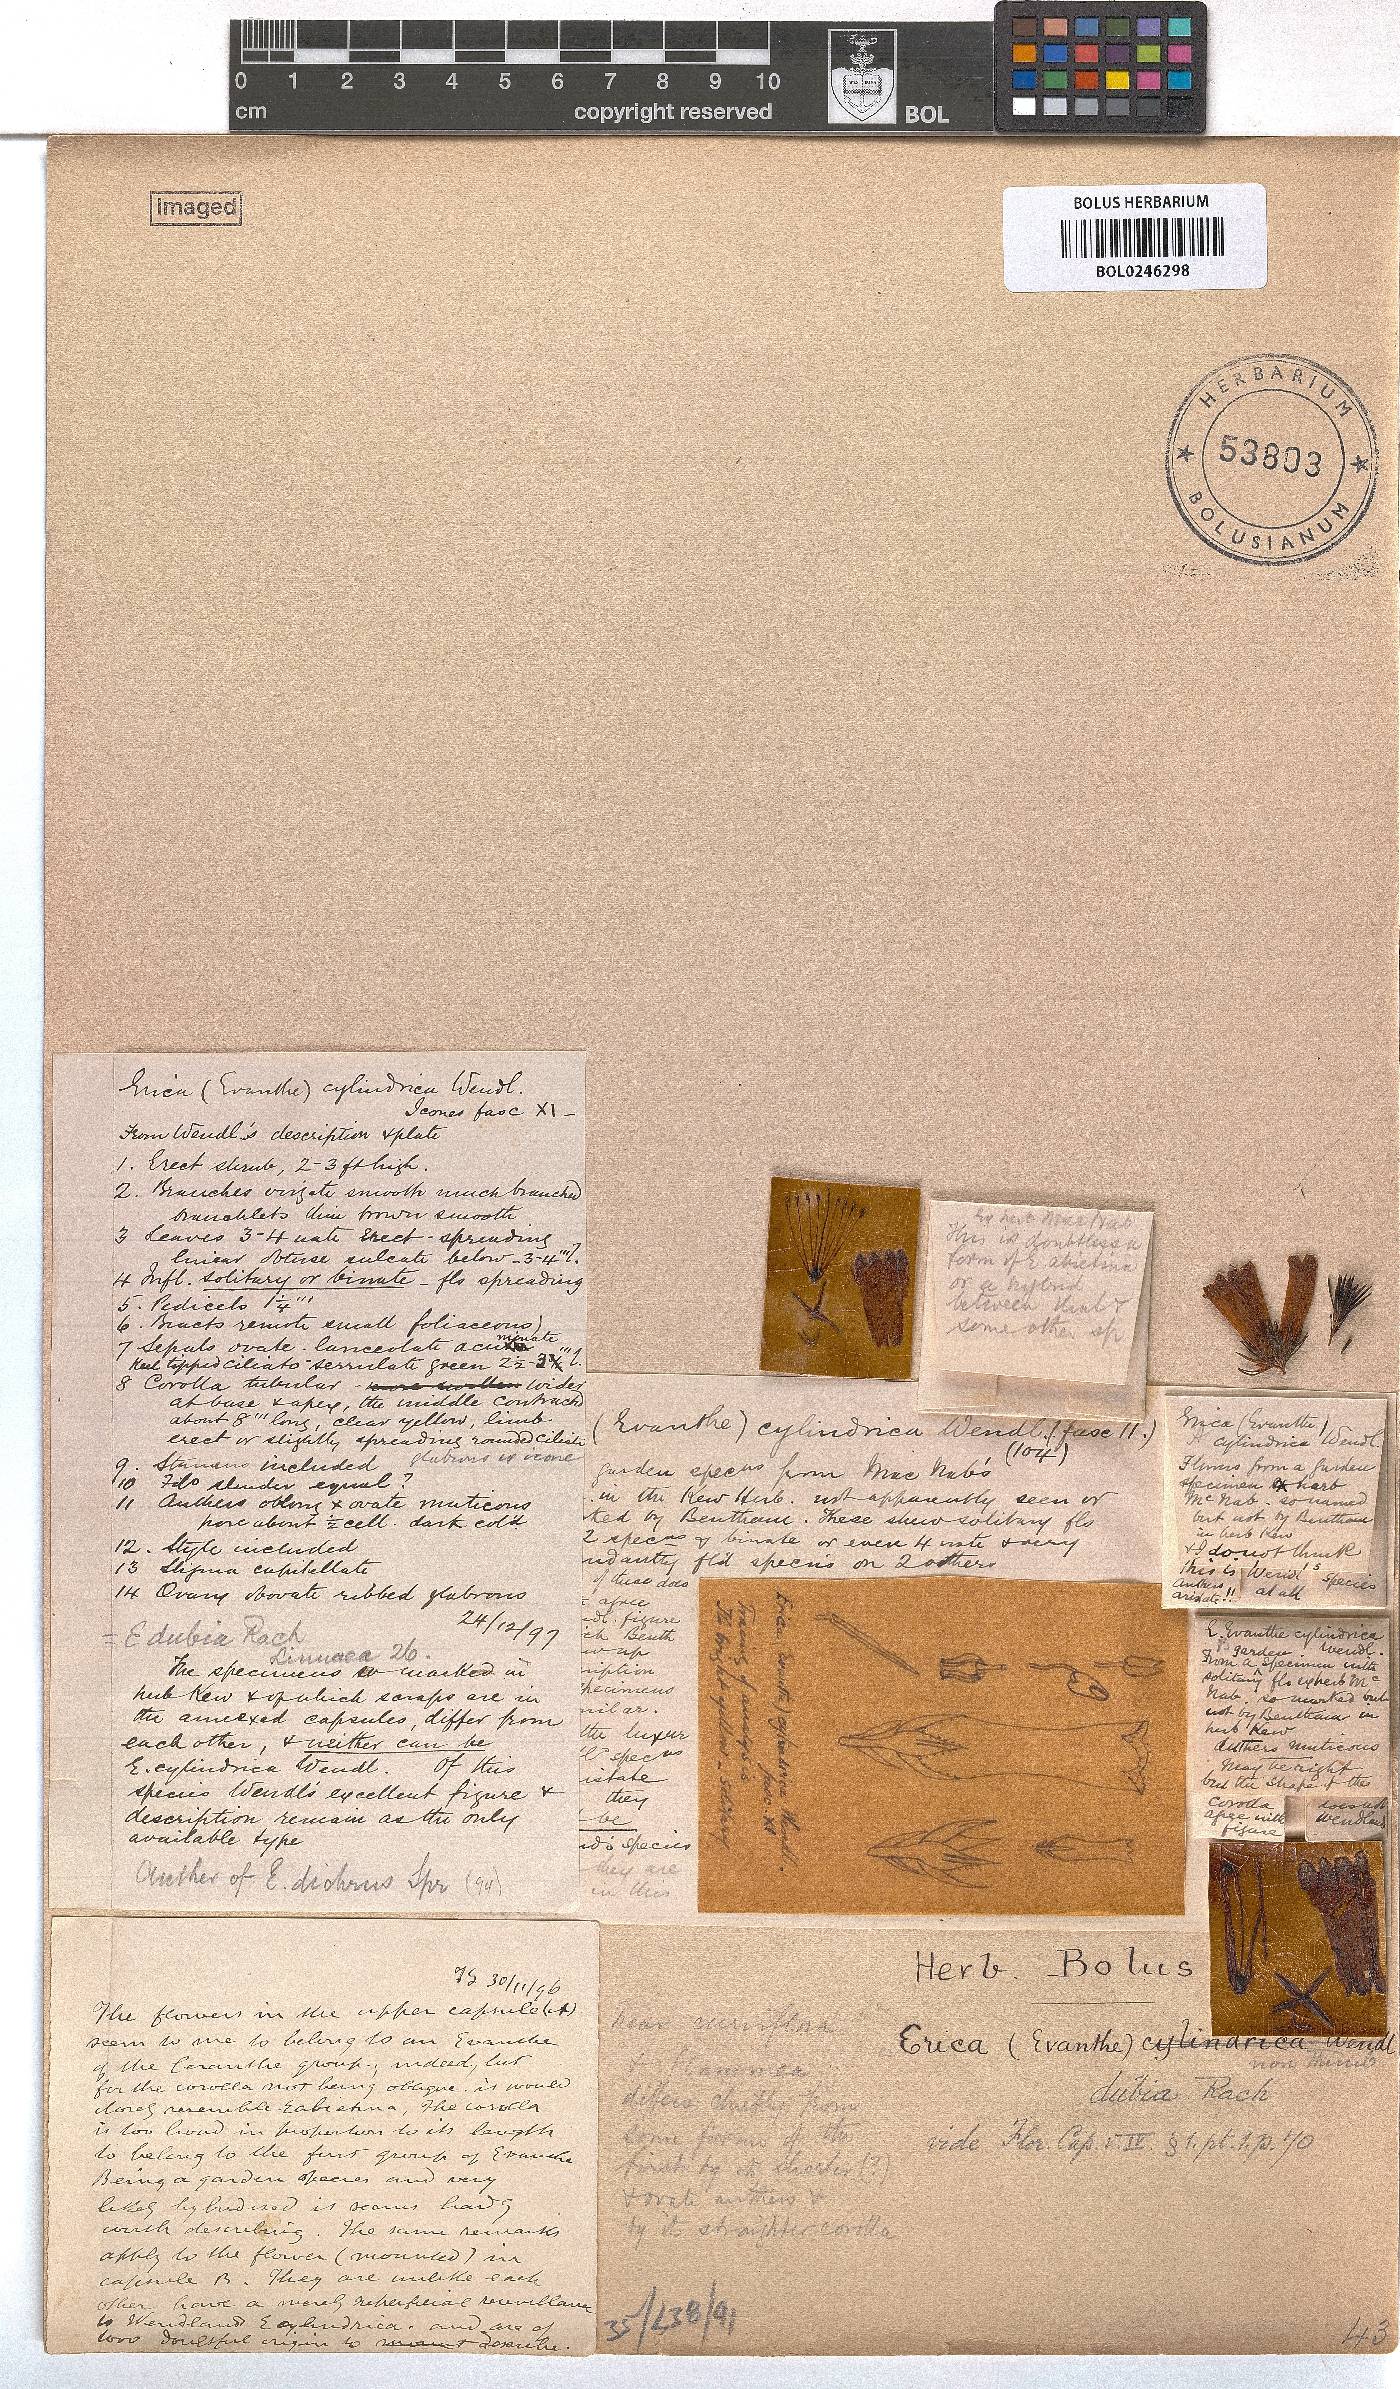 0 1 2 3 4 5 6 7 8 9 10
cm copyright reserved BOL
imaged
BOLUS HERBARIUM
BOL0246298
HERBARIUM
53803
BOLUSIANUM
Erica (Evanthe) cylindrica Wendl.
Icones fasc XI -
From Wendl's description & plate
1. Erect shrub, 2-3 ft high.
2. Branches virgate smooth much branched
branchlets thin brown smooth
3 Leaves 3-4 nate Erect-spreading
linear obtuse sulcate below - 3-4''' l.
4 Infl. solitary or binate - fls spreading
5. Pedicels 1¼'''
6. Bracts remote small foliaceous
7 Sepals ovate-lanceolate acuminate
keel tipped ciliato-serrulate green
8 Corolla tubular - wider
at base & apex, the middle contracted
about 8''' long, clear yellow, limb
erect or slightly spreading rounded ciliate
glabrous in icone
9. Stamens included
10 Filo slender equal?
11 Anthers oblong & ovate muticous
pore about ½ cell. dark col'd
12. Style included
13 Stigma capitellate
14 Ovary obovate ribbed glabrous
24/12/97
= E dubia Rach
Linnaea 26.
The specimens so marked in
herb Kew & of which scraps are in
the annexed capsules, differ from
each other, & neither can be
E. cylindrica Wendl. Of this
species Wendl's excellent figure &
description remain as the only
available type
Another of E. dichrus Spr
30/11/96
The flowers in the upper capsule (A)
seem to me to belong to an Evanthe
of the group; indeed, but
for the corolla not being oblique, it would
closely resemble E abietina, The corolla
is too broad in proportion to its length
to belong to the first group of Evanthe
Being a garden species and very
likely hybridised it seems hardly
worth describing. The same remarks
apply to the flower (mounted) in
capsule B. They are unlike each
other have a merely superficial resemblance
to Wendland E cylindrica. and are of
too doubtful origin to describe.
Ex herb MacNab
This is doubtless a
form of E abietina
or a hybrid
between that &
some other sp
(Evanthe) cylindrica Wendl. (fasc 11.)
(104)
garden specns from Mac Nab's
in the Kew Herb. not apparently seen or
ked by Bentham. These shew solitary fls
2 specns & binate or even 4 nate & very
ndantly fl'd specns on 2 others
of these does
agree
dl. figure
ch Benth
ription
pecimens
milar.
the luxur
specns
istate
they
be
nd's species
they are
in this
Erica (Evanthe) cylindrica Wendl.
fasc. XI
Tracing of analysis
Fl. bright yellow - solitary
Erica (Evanthe)
A cylindrica Wendl.
Flowers from a garden
specimen ex herb
McNab. so named
but not by Bentham
in herb Kew
& I do not think
this is Wendl's species
at all
anthers
aristate!!
E. Evanthe cylindrica
Wendl.
From a garden specimen with
solitary fls exherb Mc
Nab. so marked but
not by Bentham in
herb Kew
Anthers muticous
May be right
but the shape of the
corolla does not
agree with Wendland
figure
Herb. Bolus
Erica (Evanthe) cylindrica Wendl
dubia Rach
vide Flor. Cap. v. IV. § 1. pt. 1. p. 40
near curviflora
differs chiefly from
some forms of the
first by its shorter (?)
& ovate anthers &
by its straighter corolla
43